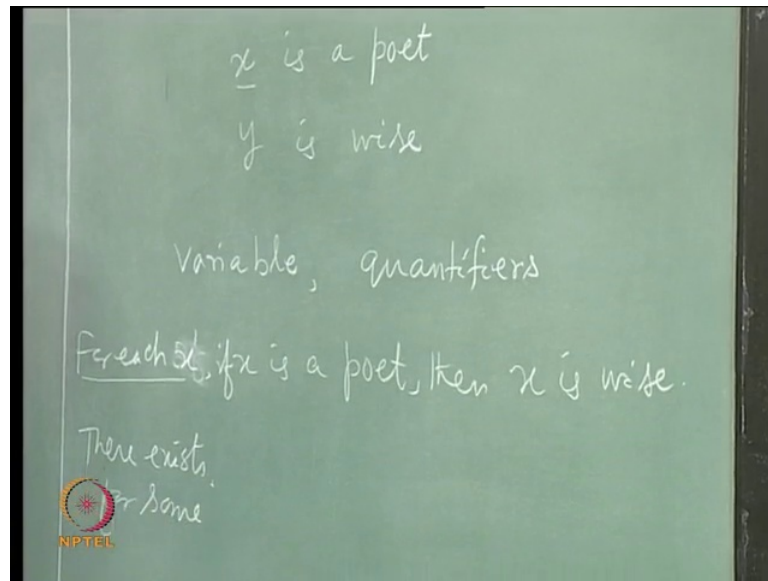 x is a poet
y is wise
variable, quantifiers
For each x, if x is a poet, then x is wise.
There exists.
for some
NPTEL